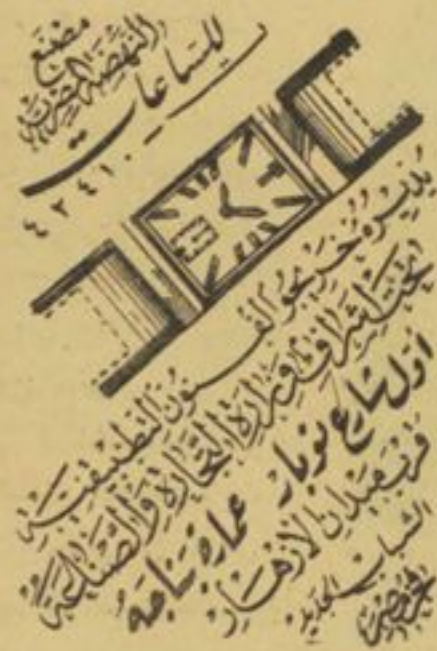 مصنع
النهضة المصرية
للساعات
٤٢٤١٠
يديره خريجو الفنون التطبيقية
تحت إشراف وزارة التجارة والصناعة
أول شارع نوبار عمارة
قرب ميدان الأزهار
الشباب الجديد